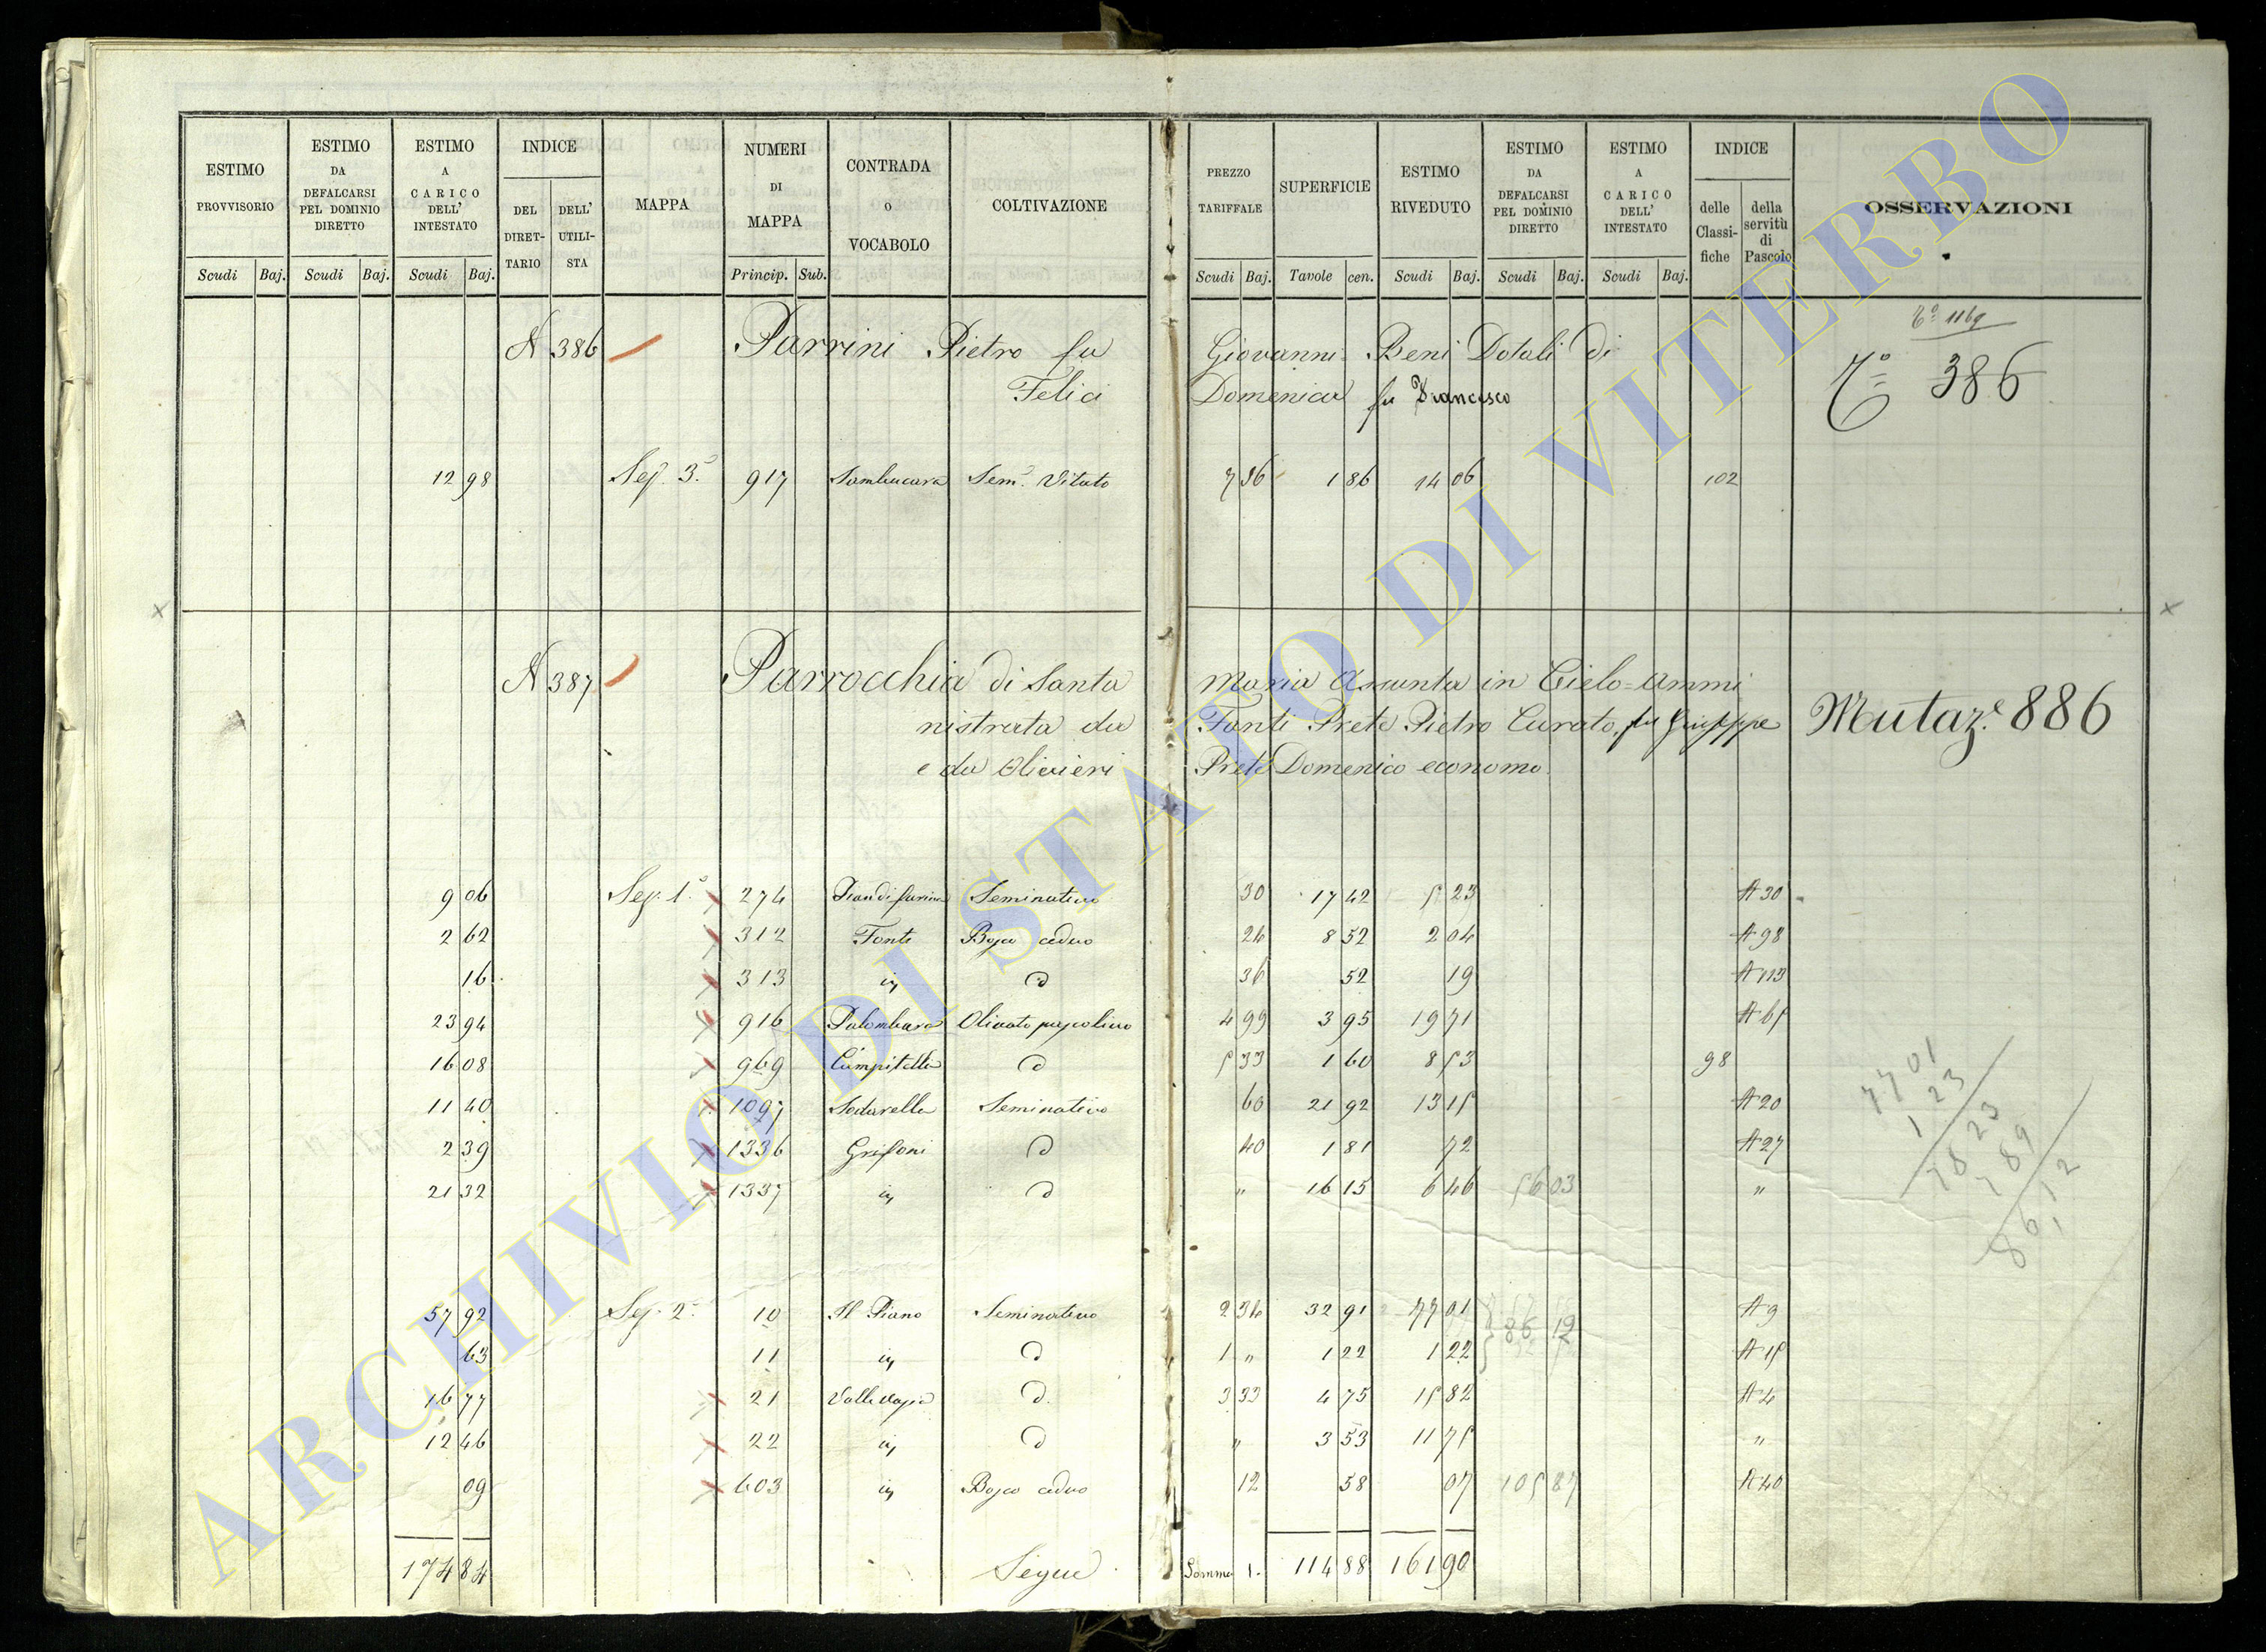 ESTIMO PROVVISORIO ESTIMO DA DEFALCARSI PEL DOMINIO DIRETTO ESTIMO A CARICO DELL' INTESTATO INDICE DEL DIRETTARIO DELL' UTILISTA MAPPA NUMERI DI MAPPA CONTRADA O VOCABOLO COLTIVAZIONE PREZZO TARIFFALE SUPERFICIE ESTIMO RIVEDUTO ESTIMO DA DEFALCARSI PEL DOMINIO DIRETTO ESTIMO A CARICO DELL' INTESTATO INDICE delle Classifiche della servitù di Pascolo OSSERVAZIONI
Scudi Baj. Scudi Baj. Scudi Baj. Princip. Sub. Scudi Baj. Tavole cen. Scudi Baj. Scudi Baj. Scudi Baj.
1169
N 386 Parrini Pietro fu Giovanni Beni Dotali di 386
Felici Domenica fu Francesco
12 98 Sez. 3ª 917 Sambucara Sem. Vitato 7 56 1 86 14 06 102
N 387 Parrocchia di Santa Maria Assunta in Cielo = Ammi
nistrata da Fonti Prete Pietro Curato, fu Giuseppe Mutaz.e 886
e da Olivieri Prete Domenico economo
9 06 Sez. 1ª 274 Seminativo 30 17 42 5 23 A 30
2 62 312 Fonti Bosco ceduo 24 8 52 2 04 A 98
16 313 id d 36 52 19 A 113
23 94 916 Palombara Olivato pascolivo 4 99 3 95 19 71 A 65
16 08 969 Campitella d 5 33 1 60 8 53 98
11 40 1097 Sodarella Seminativo 60 21 92 13 15 A 20
2 39 1336 Grifoni d 40 1 81 72 A 27
21 32 1337 id d " 16 15 6 46 56 03 "
57 92 Sez. 2ª 10 Il Piano Seminativo 2 34 32 91 77 01 A 9
63 11 id d 1 " 1 22 1 22 A 15
16 77 21 d 3 33 4 75 15 82 A 4
12 46 22 id d " 3 53 11 75 "
09 603 id Bosco ceduo 12 58 07 105 87 A 40
174 84 Segue Somma 114 88 161 90
77 01
1 23
78 23
7 89
86 12
ARCHIVIO DI STATO DI VITERBO